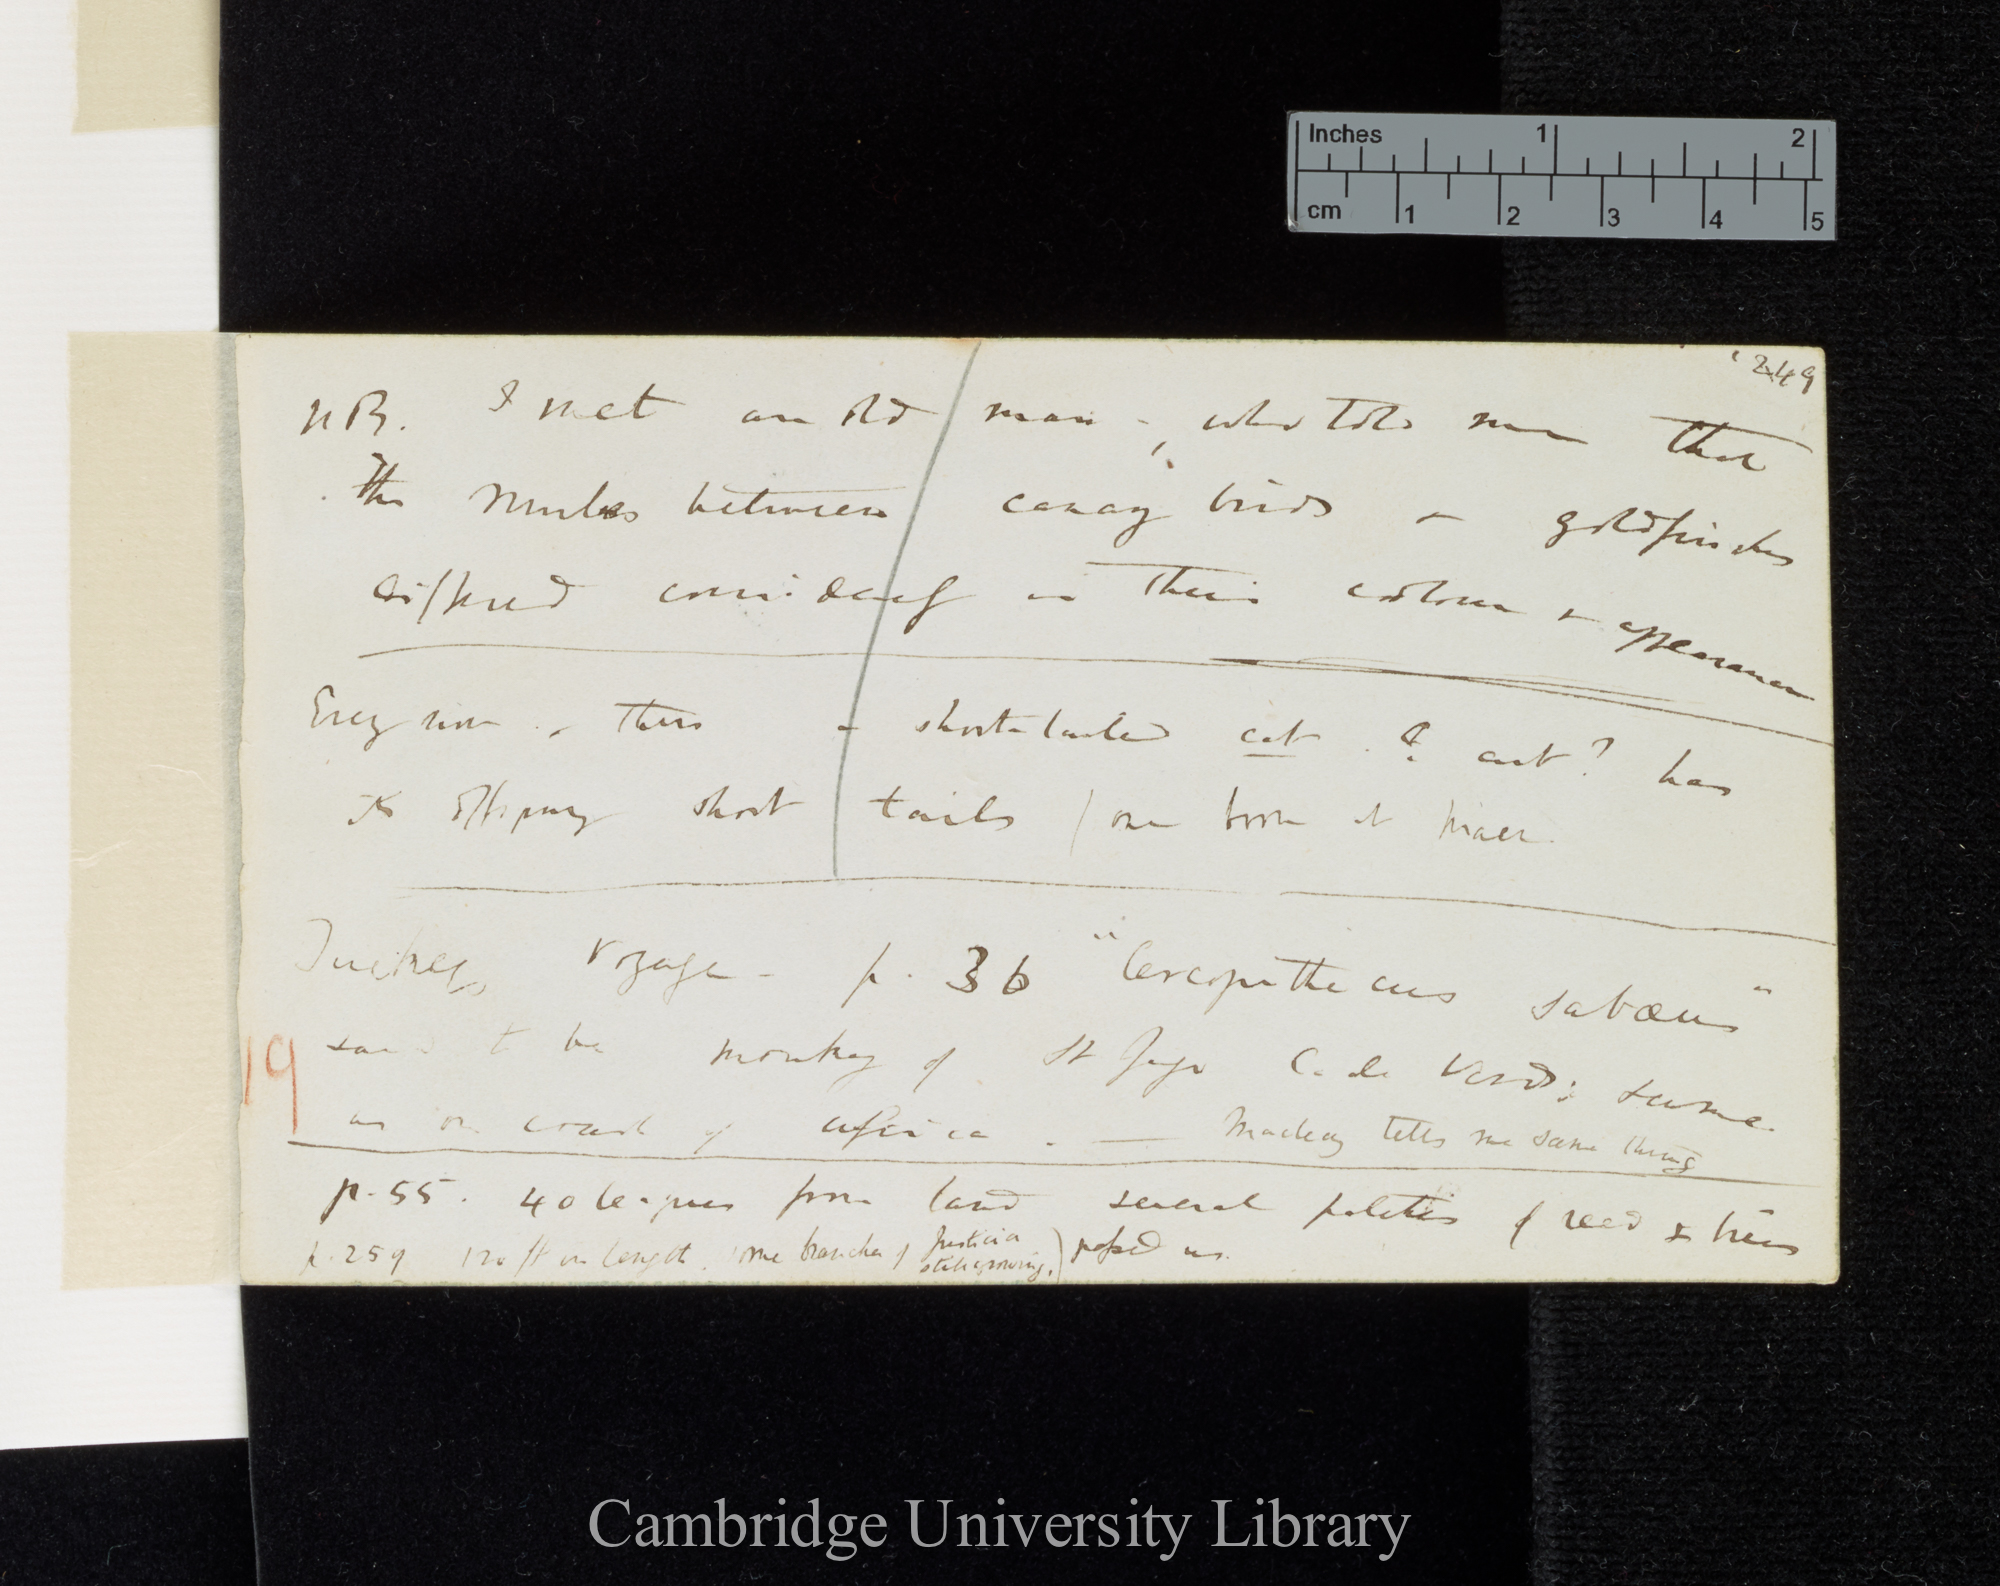 Inches 1 2
cm 1 2 3 4 5
249
NB. I met an old man, who told me that
the mules between canary birds & goldfinches
differed considerably in their colour & appearance
short-tailed cat. cut? has
its offspring short tails / one born at Maer.
Tuckey's Voyage. p. 36 "Cercopithecus sabæus"
said to be monkey of St Jago C. de Verds; same
19
as on coast of Africa. — Macleay tells me same thing
p. 55. 40 leagues from land several of reed & trees
p. 259 120 ft in length. some branches of Justicia
still growing.) passed us.
Cambridge University Library